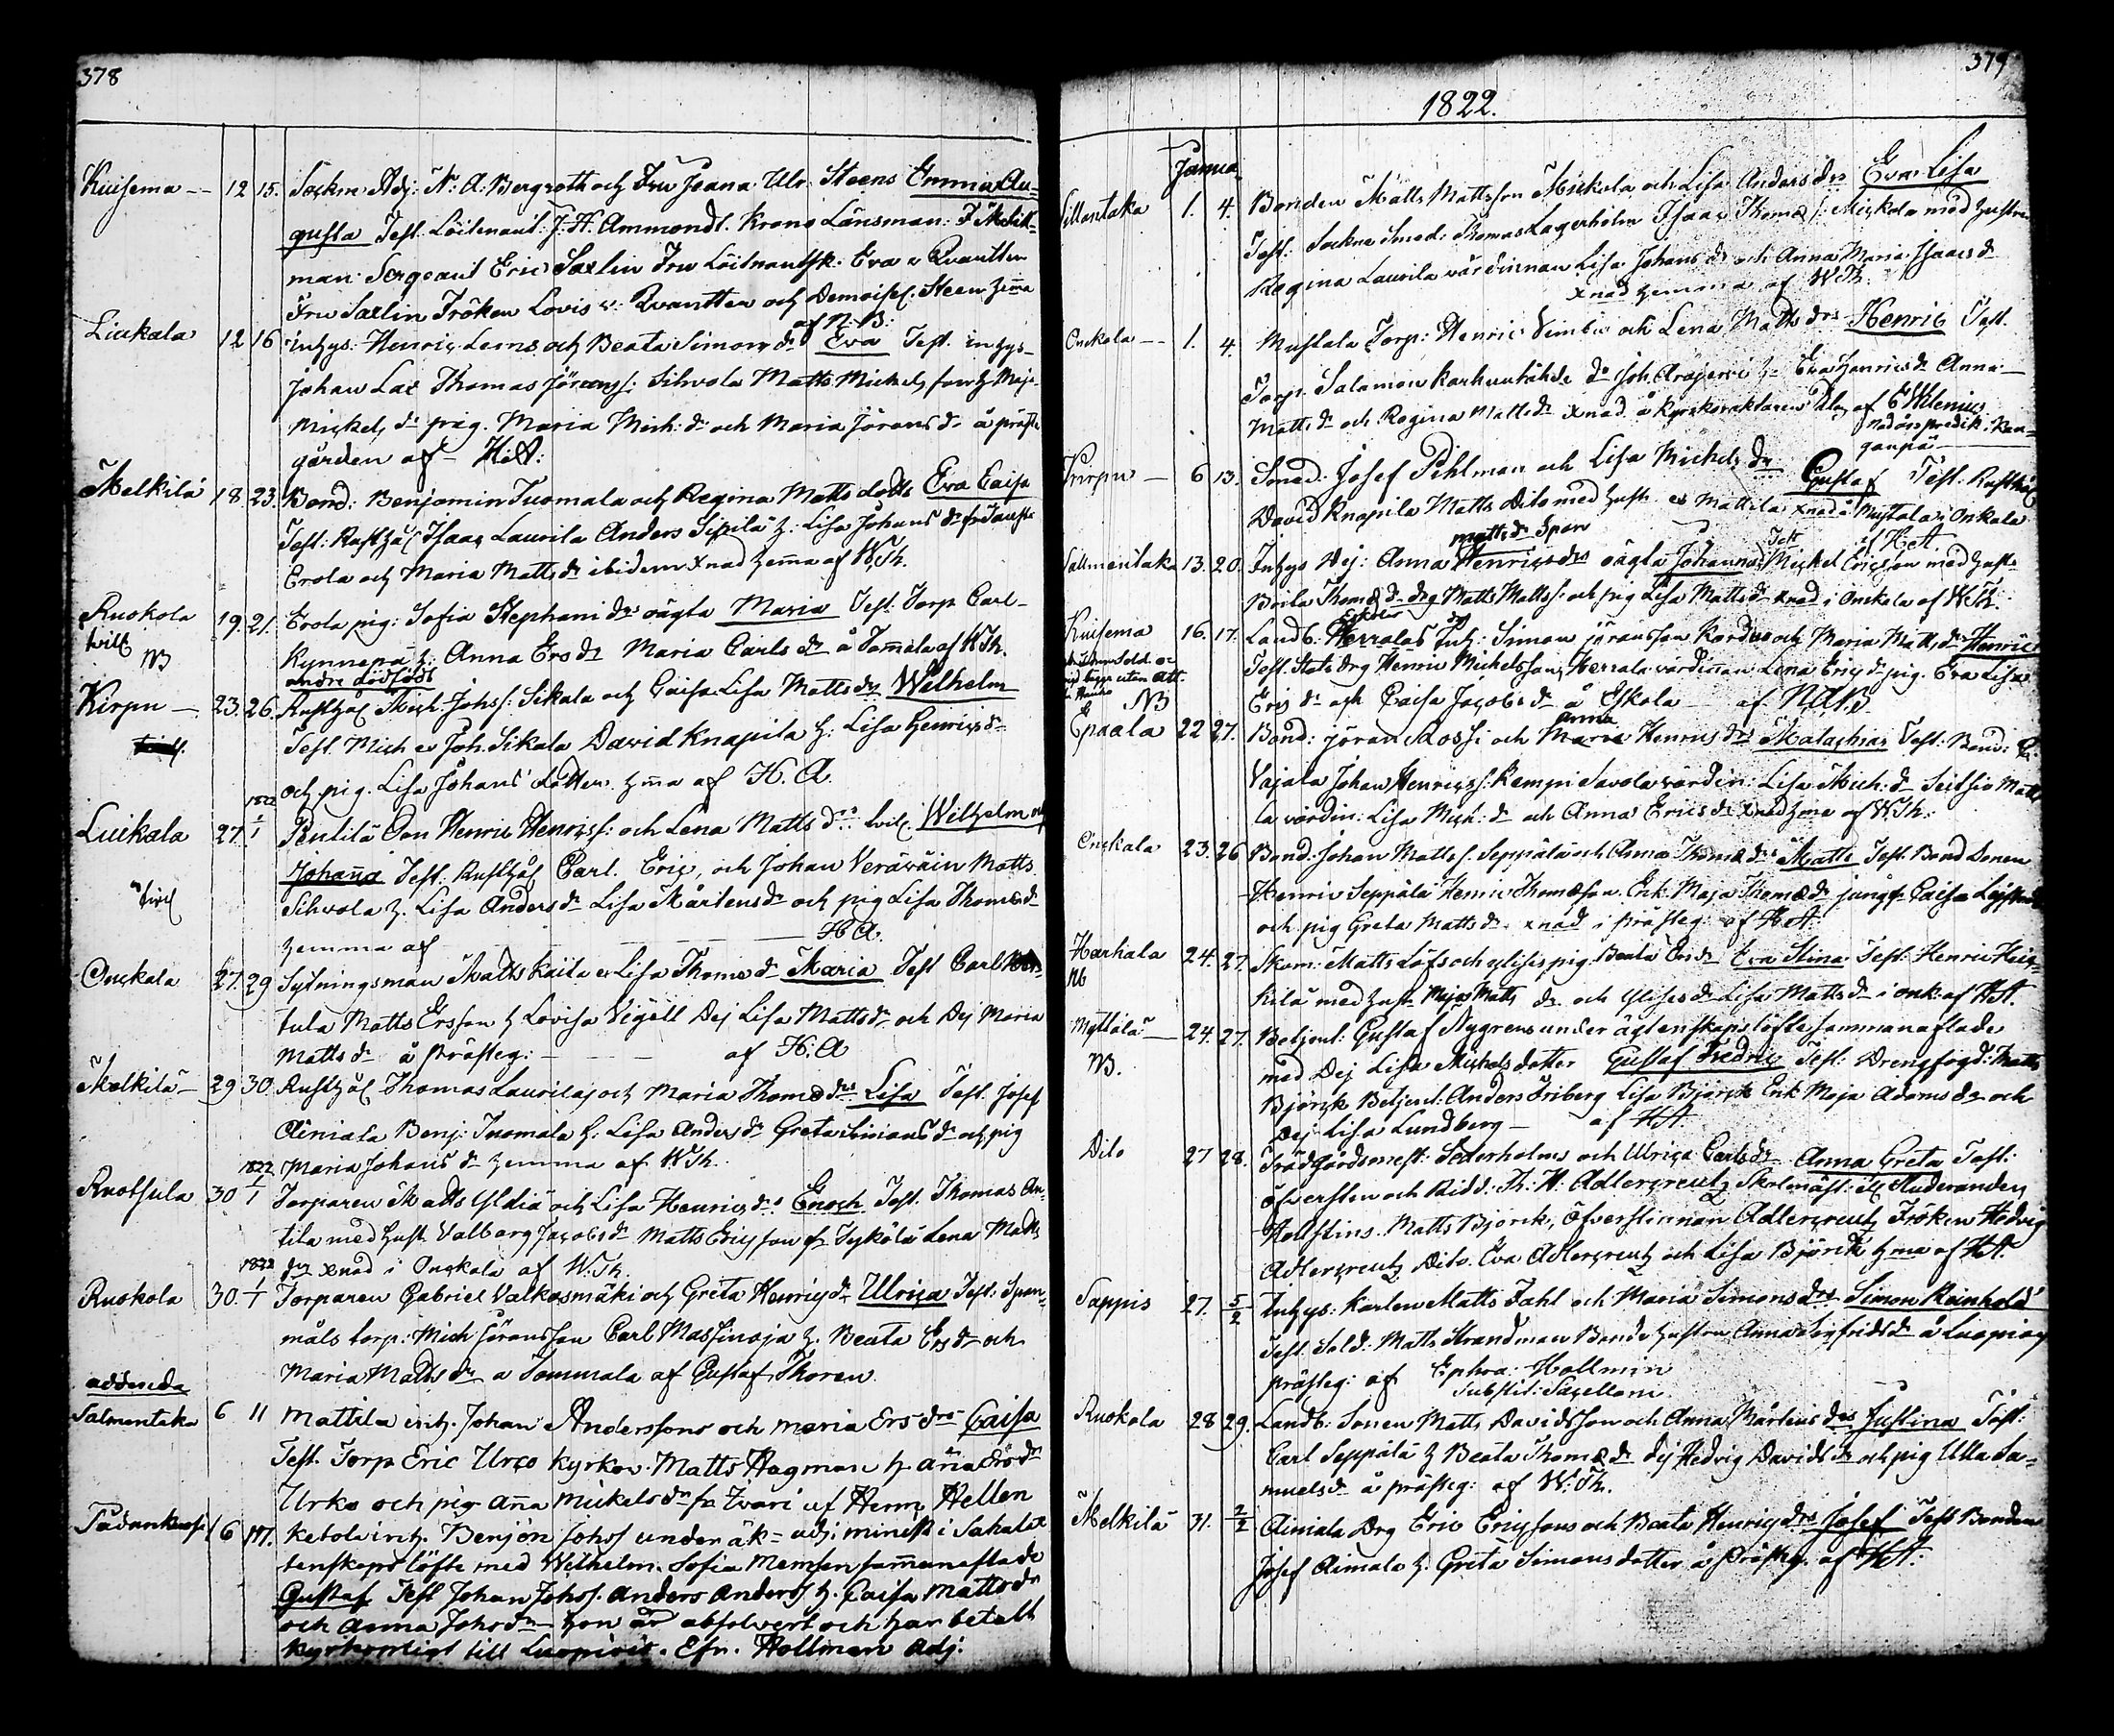 378
Kuisema -- 12 15. Sockne Adj: N: A: Bergroth och Fru Joana Ulr: Steens Emma Au-
gusta Test. Löitenant J: H. Ammondt. Krono Länsman:
man: Sergeant Eric Saxlin Fru Löitnantsk. Eva v Qvantten
Fru Saxlin Fröken Lovis v: Qvantten och Demoisel. Steen hema
af N. B:
Liukala 12 16 inhys. Henric Lerns och Beata Simons dr Eva Test. inhys-
Johan Lax Thomas Jöransf: Sihvola Matts Mickels son h Maja
Mickels dr pig. Maria Mich: dr och Maria Jörans dr å präste
gården af H A:
Melkilä 18. 23. Bond: Benjamin Tuomala och Regina Matts dotts Eva Caisa
Test: Rusthål Isaac Laurila Anders Sipilä h: Lisa Johans dr
Erola och Maria Matts dr ibidem xnad hema af W. Th.
Ruokola 19. 21. Erola pig: Sofia Stephani drs oägta Maria Test. Torp Carl
NB Kynnepä h: Anna Ers dr Maria Carls dr å Tomala af W Th.
andre dödfödt
Kirpu — 23. 26. Rusthål Mich. Johsf: Sikala och Caisa Lisa Matts drs Wilhelm
Test. Mich o Joh. Sikala David Knapila h: Lisa Henrics dr
och pig. Lisa Johans dotter hma af H. A.
1822
Luikala 27 1/1 Pentilä Son Henric Henricsf: och Lena Matts drs tvil. Wilhelm och
Johanna Test: Rusthål Carl. Eric, och Johan Veräväin Matts
tvil Sihvola h. Lisa Anders dr Lisa Mårtens dr och pig Lisa Thomæ dr
hemma af — H A.
Onckala 27. 29 Sytningsman Matts Kaila o Lisa Thomæ dr Maria Test Carl
tula Matts Ersson h Lovisa Vigell Dej Lisa Matts dr och Dej Maria
Matts dr å Prästeg: — af H: A
Melkilä — 29 30. Rusthål Thomas Laurilas och Maria Thomæ drs Lisa Test. Josef
Ainiala Benj: Tuomala h: Lisa Anders dr Greta Simons dr och pig
Maria Johans dr hemma af W Th.
1822
Ruotsula 30 1/1 Torparen Matts Yldiä och Lisa Henrics drs Enoch Test. Thomas An-
tila med hust Valborg Jacobs dr Matts Ericsson fr Tykölä Lena Matts
dr xnad i Onckala af W. Th.
1822
Ruokola 30. 1/1 Torparen Gabriel Valkasmäki och Greta Henrics dr Ulrica Test: Spen-
måls torp: Mich Jöransson Carl Massinoja h. Beata Ers dr och
Maria Matts dr a Tommala af Gustaf Thoren
addenda
Salmentaka 6 11 Mattila inh. Johan Anderssons och Maria Ers drs Caisa
Test. Torp Eric Urco kyrkov. Matts Hagman h. Äna
Urko och pig Aña Mickels dr fr Ivari af Henric Hellen
6 keto inh. Benjon Johsf under äk- adj: minist i Sahalax
tenskaps löfte med Wilhelm. Sofia Memsen sammanaflade
Gustaf Test Johan Johsf. Anders Andersf h. Caisa Matts dr
och Anna Johs dr — hon är absolvert och har betalt
kyrkopligt till Luopiois. Efr. Hollmen adj:
379
1822.
Janua.
Sillantaka 1. 4. Bonden Matts Mattsson Mickola och Lisa Anders drs Eva Lisa
Test. Sockne Smed: Thomas Lagerholm Isaac Thomæ f: Mickola med hustru
Regina Laurila värdinnan Lisa Johans dr och Anna Maria Isaacs dr
xnad hemma af W Th.
Onckala — 1. 4. Mustala Torp: Henric Simbi och Lena Matts drs Henric Test.
Torp. Salamon Karhuntähde dr Joh. Arajervi h: Eva Henrics dr Anna
Matts dr och Regina Matts dr xnad å Kyrckoraktaren af E Wlenius
nådårspredik. Kan-
gaspä
Kirpu — 6 13. Smed: Josef Pihlman och Lisa Michels dr Gustaf Test. Rusthål
David Knapila Matts Dito med hust. Mattila xnad å Mustala i Onkala
matts dr Spar af H A
Salmentaka 13. 20. Inhys Dej: Anna Henrics drs oägta Johanna Test Mickel Ericsson med hust
Brita Thomæ dr drg Matts Mattsf: och pig Lisa Matts dr xnad i Onckala af W Th.
Eskola
Kuisema 16. 17. Landb. Herralas Inh: Simon Jöransson Kordus och Maria Matts drs Henric
Test. Stats drg Henric Michelsson, Herrala värdinan Lena Erics dr pig. Eva Lisa
NB Erics dr och Caisa Jacobs dr å Eskola af N A B
Epaala 22 27. Bond: Jöran Rossi och Anna Maria Henrics drs Malachias Test: Bond:
Vajala Johan Henricsf: Kempi Savola värdin: Lisa Mich: dr Seitsio Matt
la värdin: Lisa Mich: dr och Anna Erics dr xnad hma af W Th.
Onckala 23. 26 Bond: Johan Mattsf: Seppälä och Anna Thomæ drs Matts Test. Bond Sonen
Henric Seppälä Henric Thomæson Enk. Maja Thomæ dr jungf. Caisa
och pig Greta Matts dr xnad i prästeg: af H A:
Harhala 24. 27. Skom: Matts Löfs och ylisis pig. Beata Ers dr Eva Stina Test: Henric Heic-
NB kilä med hust Maja Matts dr och ylises dr Lisa Matts dr i onk: af H A.
Myttälä — 24. 27. Betjent: Gustaf Nygrens under ägtenskaps löfte sammanaflade
NB. med Dej Lisa Mickels dotter Gustaf Fredric Test: Drengfogd: Matts
Björck Betjent: Anders Friberg Lisa Björck Enk Maja Adams dr och
Dej Lisa Lundberg — af H A:
Dito 27 28. Trädgårdsmest: Sederholms och Ulrica Carls dr Anna Greta Test:
öfversten och Ridd: Th: H: Adlercreutz Skolmäst: Studeranden
Hollstins. Matts Björck, Öfverstinnan Adlercreutz Fröken Hedvig
Adlercreutz Dito. Eva Adlercreutz och Lisa Björck hma af H A:
Sappis 27. 5/2 Inhys: karlen Matts Fahl och Maria Simons drs Simon Reinhold
Test. Sold: Matts Strandman Bonde hustru Anna Sigfrids dr å Luopiois
prästeg: af Ephra: Hollmin
Substit: Sacellan.
Ruokola 28 29. Landb: Sonen Matts Davidsson och Anna Mårtens drs Justina Test:
Carl Seppälä h Beata Thomæ dr dej Hedvig Davids dr och pig Ulla Sa-
muels dr å prästeg: af W: Th.
Melkilä 31. 2/2 Ainiala Drg Eric Ericssons och Beata Henrics drs Josef Test Bonden
Josef Aimala h. Greta Simons dotter å Prästeg. af H A: